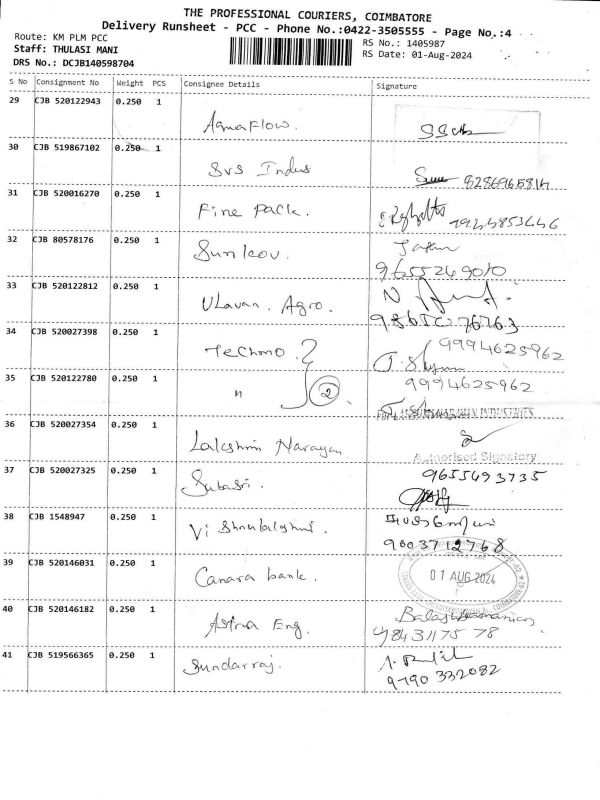 THE PROFESSIONAL COURIERS, COIMBATORE
Delivery Runsheet - PCC - Phone No.:0422-3505555 - Page No.:4
Route: KM PLM PCC
RS No.: 1405987
Staff: THULASI MANI
RS Date: 01-Aug-2024
DRS No.: DCJB140598704
S No Consignment No Weight PCS Consignee Details Signature
29 CJB 520122943 0.250 1 Aquaflow.
30 CJB 519867102 0.250 1 SVS Indus
31 CJB 520016270 0.250 1 Fine Pack.
32 CJB 80578176 0.250 1
9655249010
33 CJB 520122812 0.250 1 Ulavan. Agro.
34 CJB 520027398 0.250 1 Techno
9994625962
35 CJB 520122780 0.250 1 " 2
9994625962
36 CJB 520027354 0.250 1 Lakshmi Narayan
Authorised Signatory
37 CJB 520027325 0.250 1 Subasri.
9655493735
38 CJB 1548947 0.250 1
9003712768
39 CJB 520146031 0.250 1 Canara bank.
01 AUG 2024
40 CJB 520146182 0.250 1 Astra Eng.
9843117578
41 CJB 519566365 0.250 1 Sundarraj.
9790 332082